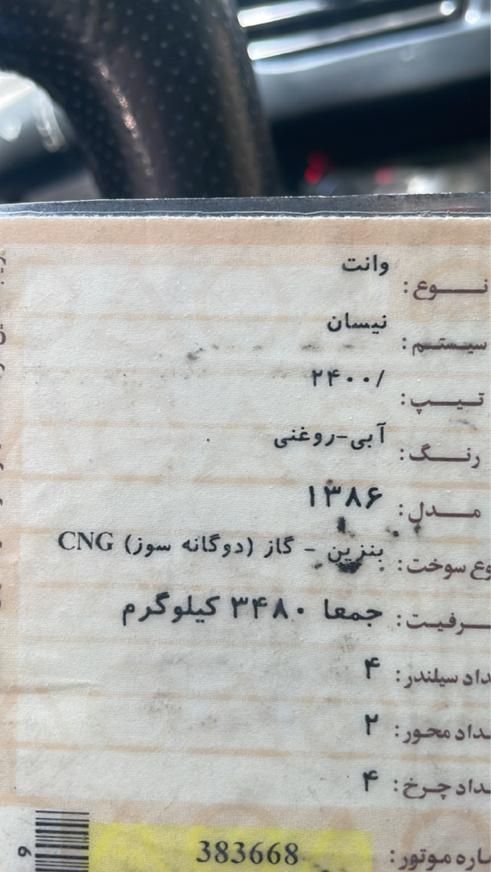 نوع: وانت
سیستم: نیسان
تیپ: /۲۴۰۰
رنگ: آبی-روغنی
مدل: ۱۳۸۶
وع سوخت: بنزین - گاز (دوگانه سوز) CNG
رفیت: جمعا ۳۴۸۰ کیلوگرم
داد سیلندر: ۴
داد محور: ۲
داد چرخ: ۴
اره موتور: 383668